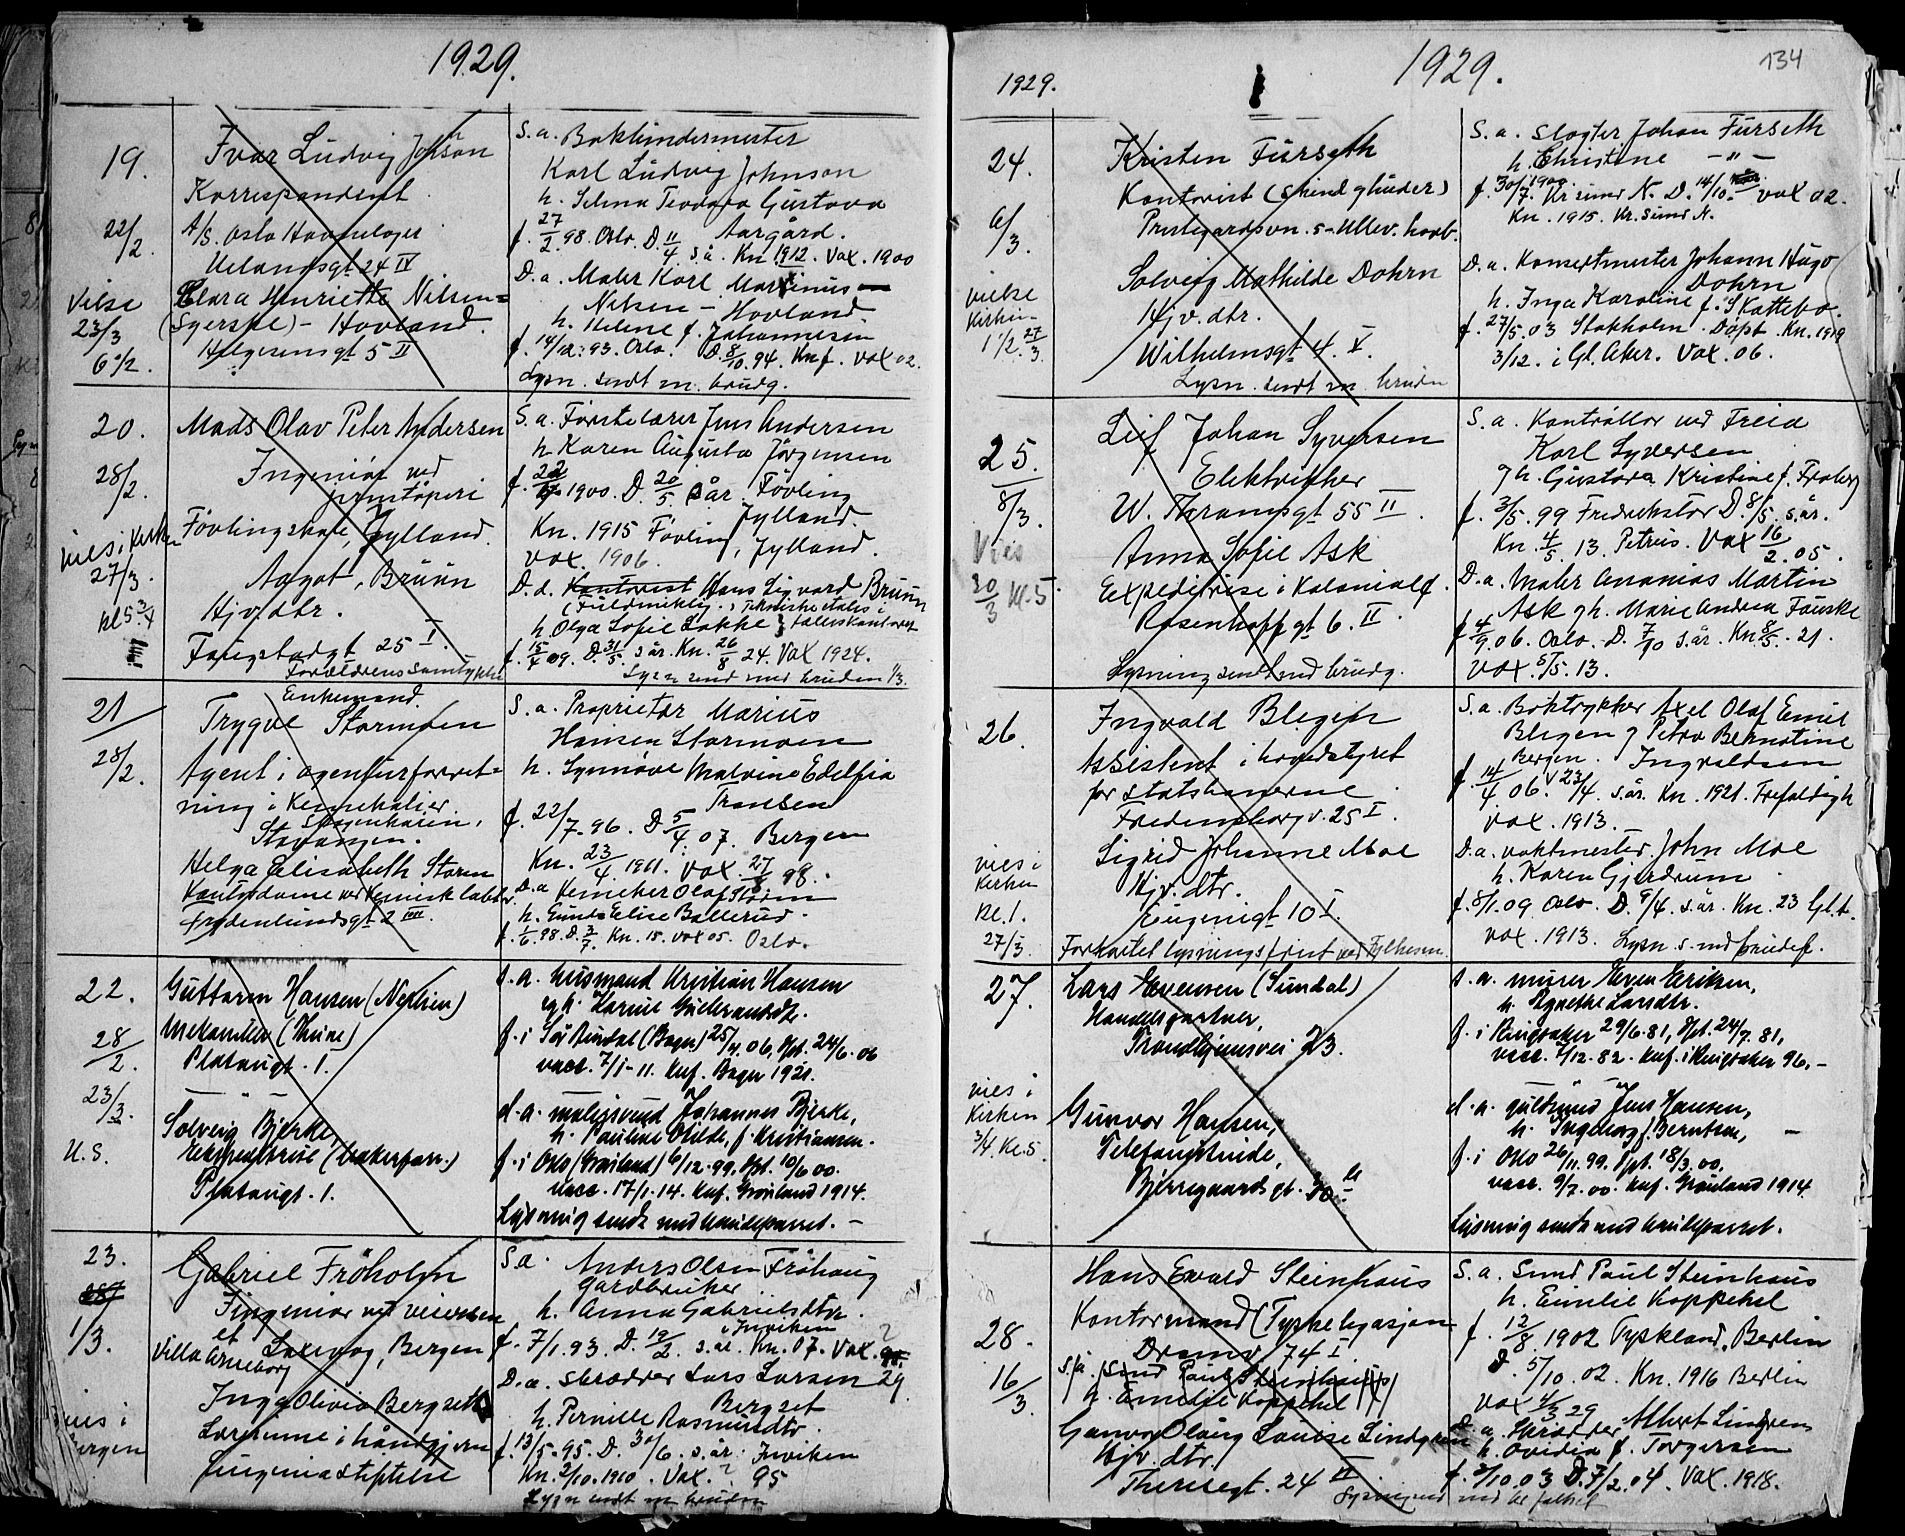 1929.
19.
22/2.
Vilse
23/3
6 1/2.
Ivar Ludvig Johnson
Korrespondent
A/S. Oslo Havnelager
Uelandsgt 24 IV
Clara Henriette Nilsen=
(Syerske) - Hovland.
Helgesensgt 5 II
S. a. Bokbindermester
Karl Ludvig Johnson
h. Selma Teodora Gustava
Aargård.
f. 27/2 98. Oslo. D. 11/4 s.å. Kn 1912. Vax. 1900
D. a. Maler Karl Martinus
Nilsen - Hovland
h. Helene f. Johannesen
f. 14/12. 93. Oslo. D 8/10 94. Knf. Vax 02.
Lysn. sendt m. brudg.
20.
28/2.
vies i kirken
27/3.
kl 5 3/4
Mads Olav Peter Andersen
Ingeniør ved
Føvlingskole, Jylland.
Aagot Bruun
Hjv. dtr.
Fougstadgt 25 I.
Forældrenes samtykke
S. a. Førstelærer Jens Andersen
h. Karen Augusta Jørgensen
f. 1900. D. 20/5 s år. Føvling
Jylland.
Kn. 1915 Føvling, Jylland.
Vax. 1906.
D. d. Kontorist Hans Sigvard Bruun
h. Olga Sofie Løkke
f. 15/4 09. D. 31/5. s år. Kn. 26/8 24. Vax 1924.
Lysn send med bruden 1/3.
21
28/2.
Enkemand.
Trygve Stormoen
Agent i agenturforret=
ning i Kemikalier
Stavanger.
Helga Elisabeth Storm
Kontordame ved Kemisk labor.
Frydenlundsgt 2 III.
S. a. Proprietør Marius
Hansen Stormoen
h. Synnøve Malvine Edelfia
Fransen
f. 22/7. 96. D 5/4. 07. Bergen
Kn. 23/4. 1911. Vax. 27/8 98.
D. a Kemiker Olaf Storm
h. Gunda Elise Ballerud.
f. 1/6. 98. D. 3/7. Kn. 15. Vax 05. Oslo.
22.
28/2.
23/3.
U. S.
Guttorm Hansen (Nerlien)
Mekaniker (Thune)
Platougt. 1.
Solveig Bjerke,
Ekspeditrise (bakerforr.)
Platougt. 1.
s. a. husmand Kristian Hansen
og h. Karine Guttormsdtr.
f. i Sør Rindal (Bøger) 25/4. 06, dpt. 24/6. 06
vacc. 7/1-11. knf. Bøger 1921.
d. a. malersvend Johannes Bjerke,
h. Pauline Otilde, f. Kristiansen.
f. i Oslo (Grønland) 6/12. 99, dpt. 10/6 00.
vacc. 17/1. 14. knf. Grønland 1914.
Lysning sendt med brudeparret. -
23.
1/3.
vies i
Bergen
Gabriel Frøholm
Ingeniør ved veivesen
et Laksevåg, Bergen
Villa Arneborg
Inga Olivia Bergset
Lærerinne i håndgjerning
Eugeniastiftelse
S. a. Anders Olsen Frøhaug
gardbruker
h. Anna Gabrielsdtr.
i Inviken
f. 7/1. 93. D. 12/2. s. år. Kn. 07. Vax. ?
D. a. skrædder Lars Larsen 29.
Bergset
h. Pernille Rasmusdtr.
f. 13/5. 95. D. 30/6. s. år. Inviken
Kn. 2/10. 1910. Vax. ? 95
Lysn sendt m bruden
1929.
1929.
134
24.
6/3.
vielse
Kirken
1 1/2. 27/3.
Kristen Furseth
Kontorist (Skind & huder)
Prestegardsvn. 5 - Ullev. haveb.
Solveig Mathilde Dohrn
Hjv. dtr.
Wilhelmsgt 4. V.
Lysn. sendt m. bruden
S. a. slagter Johan Furseth
h. Christine - " -
f. 30/7. 1900. Kr. sund N. D. 14/10. vax 02.
Kn. 1915. Kr. sund N.
D. a. Konsertmester Johann Hugo
Dohrn
h. Inga Karoline f. Skattebo.
f. 27/5. 03 Stokholm. Døpt. Kn. 1919
3/12. i Gl. Aker. Vax. 06.
25.
8/3.
Vies
20/3 kl. 5.
Leif Johan Syversen
Elektriker
W. Thranesgt 55 II.
Anna Sofie Ask
Expeditrise i Kolonialf.
Rosenhoffgt 6. II.
Lysning sendt med brudg.
S. a. Kontrollør ved Freia
Karl Syversen
og h. Gustava Kristine f. Froberg
f. 3/5. 99 Fredrikstad D. 8/5. s. år.
Kn. 4/5. 13. Petrus. Vax 16/2. 05.
D. a. Maler Ananias Martin
Ask og h. Marie Andrea Fauske
f. 4/9. 06. Oslo. D. 7/10 s. år. Kn. 8/5. 21.
Vax. 5/5. 13.
26.
vies i
Kirken
kl. 1.
27/3
Ingvald Blegen
Assistent i hovedstyret
for Statsbanerne
Fredensborgv. 25 I.
Sigrid Johanne Moe
Hjv. dtr.
Eugenigt 10 I.
Forkortet lysningsfrist ved Fylkesm.
S. a. Boktrykker Axel Olaf Emil
Blegen og Petra Bernotine
Bergen. Ingvaldsen
f. 14/4 06. v 23/4. s. år. Kn. 1921. Trefoldigh
vax. 1913.
D. a. vaktmester John Moe
h. Karen Gjerdrum
f. 8/1. 09 Oslo. D. 9/4. s. år. Kn. 23 Gl. A.
vax. 1913. Lysn s. md brudef.
27.
vies i
Kirken
3/4. Kl. 5.
Lars Evensen (Sundal)
Handelsgartner,
Trondhjemsvei 23.
Gunvor Hansen,
Telefonistinde,
Bjerregaardsgt. 30 b
s. a. murer Even Eriksen,
h. Agnethe Larsdtr.
f. i Ringsaker 29/6. 81, dpt. 24/7. 81,
vacc. 7/12. 82. knf. i Ringsaker 96. -
d. a. gullsmed Jens Hansen,
h. Ingeborg f. Berntsen, -
f. i Oslo 26/11. 99. dpt. 18/3. 00.
vacc. 9/7. 00. knf. Grønland 1914
Lysning sendt med brudeparret.
28.
16/3.
Hans Ewald Steinhaus
Kontormand (Tyske legasjon
Dramsv. 74 I
s. a. Smed Paul Steinhaus
h. Emilie Koppehel
Gunvor Olaug Louise Lindgren
Hjv. dtr.
Theresegt. 24 IV
S. a. Smed Paul Steinhaus
h. Emilie Koppehel
f. 12/8. 1902 Tyskland, Berlin
D. 5/10. 02. Kn. 1916 Berlin
Vax 4/3 29
d. a. Skrædder Albert Lindgren
h. Ovedia f. Torgersen
f. 3/10. 03 D. 7/2. 04. Vax. 1918.